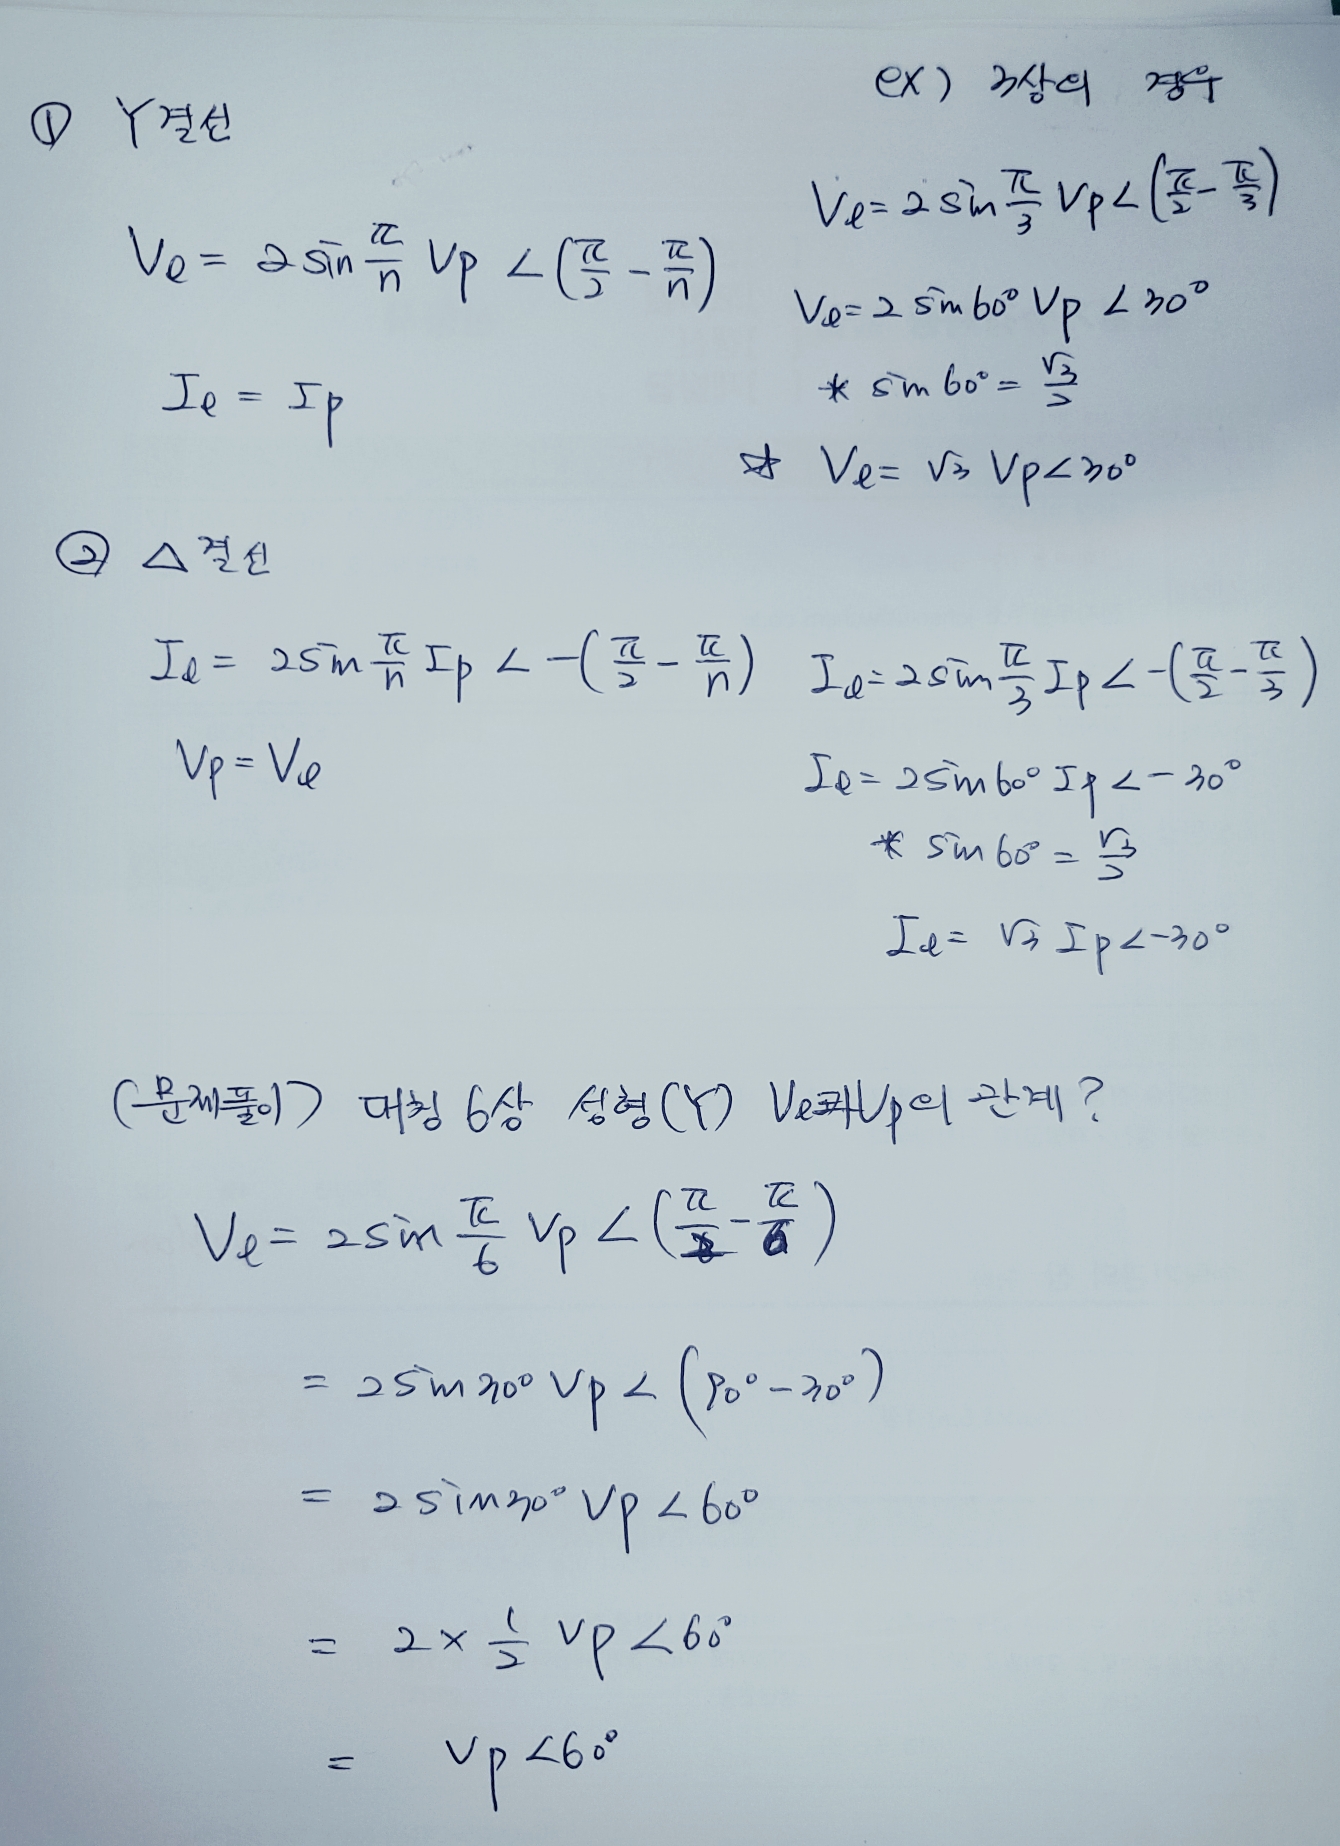 ex) 3상의 경우
① Y결선
Vℓ = 2 sin π/3 Vp ∠(π/2 - π/3)
Vℓ = 2 sin π/n Vp ∠(π/2 - π/n)
Vℓ = 2 sin 60° Vp ∠30°
Iℓ = Ip
* sin 60° = √3/2
☆ Vℓ = √3 Vp∠30°
② △결선
Iℓ = 2 sin π/n Ip ∠-(π/2 - π/n)
Iℓ = 2 sin π/3 Ip ∠-(π/2 - π/3)
Vp = Vℓ
Iℓ = 2 sin 60° Ip ∠-30°
* sin 60° = √3/2
Iℓ = √3 Ip ∠-30°
(문제풀이) 대칭 6상 성형(Y) Vℓ과 Vp의 관계?
Vℓ = 2 sin π/6 Vp ∠(π/2 - π/6)
= 2 sin 30° Vp ∠(90° - 30°)
= 2 sin 30° Vp ∠60°
= 2 × 1/2 Vp ∠60°
= Vp ∠60°